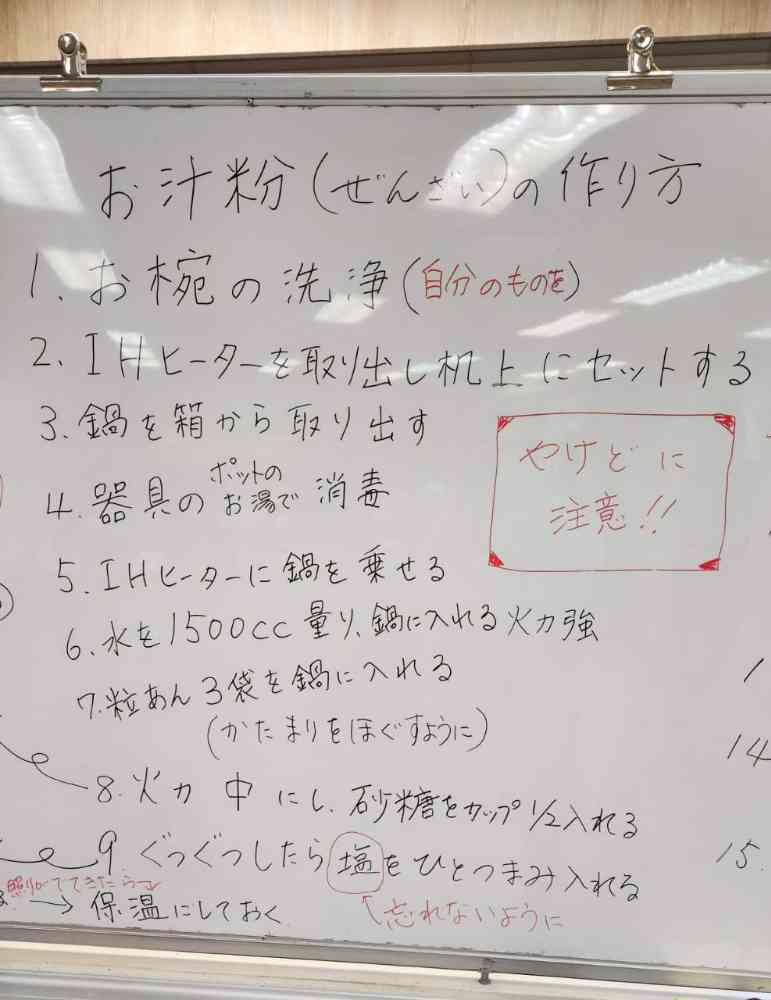 お汁粉(ぜんざい)の作り方
1. お椀の洗浄(自分のものを)
2. IHヒーターを取り出し机上にセットする
3. 鍋を箱から取り出す
4. 器具のポットのお湯で消毒
やけどに
注意!!
5. IHヒーターに鍋を乗せる
6. 水を1500cc量り、鍋に入れる火力強
7. 粒あん3袋を鍋に入れる
(かたまりをほぐすように)
8. 火力中にし、砂糖をカップ1/2入れる
9. ぐつぐつしたら塩をひとつまみ入れる
照りがでてきたら
→保温にしておく
忘れないように
14
15.